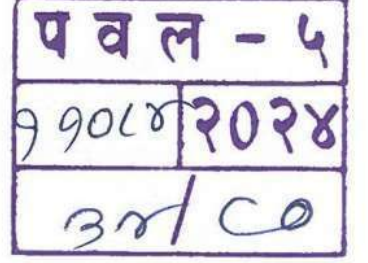 प व ल - ५
११०८४ २०२४
३४/८०